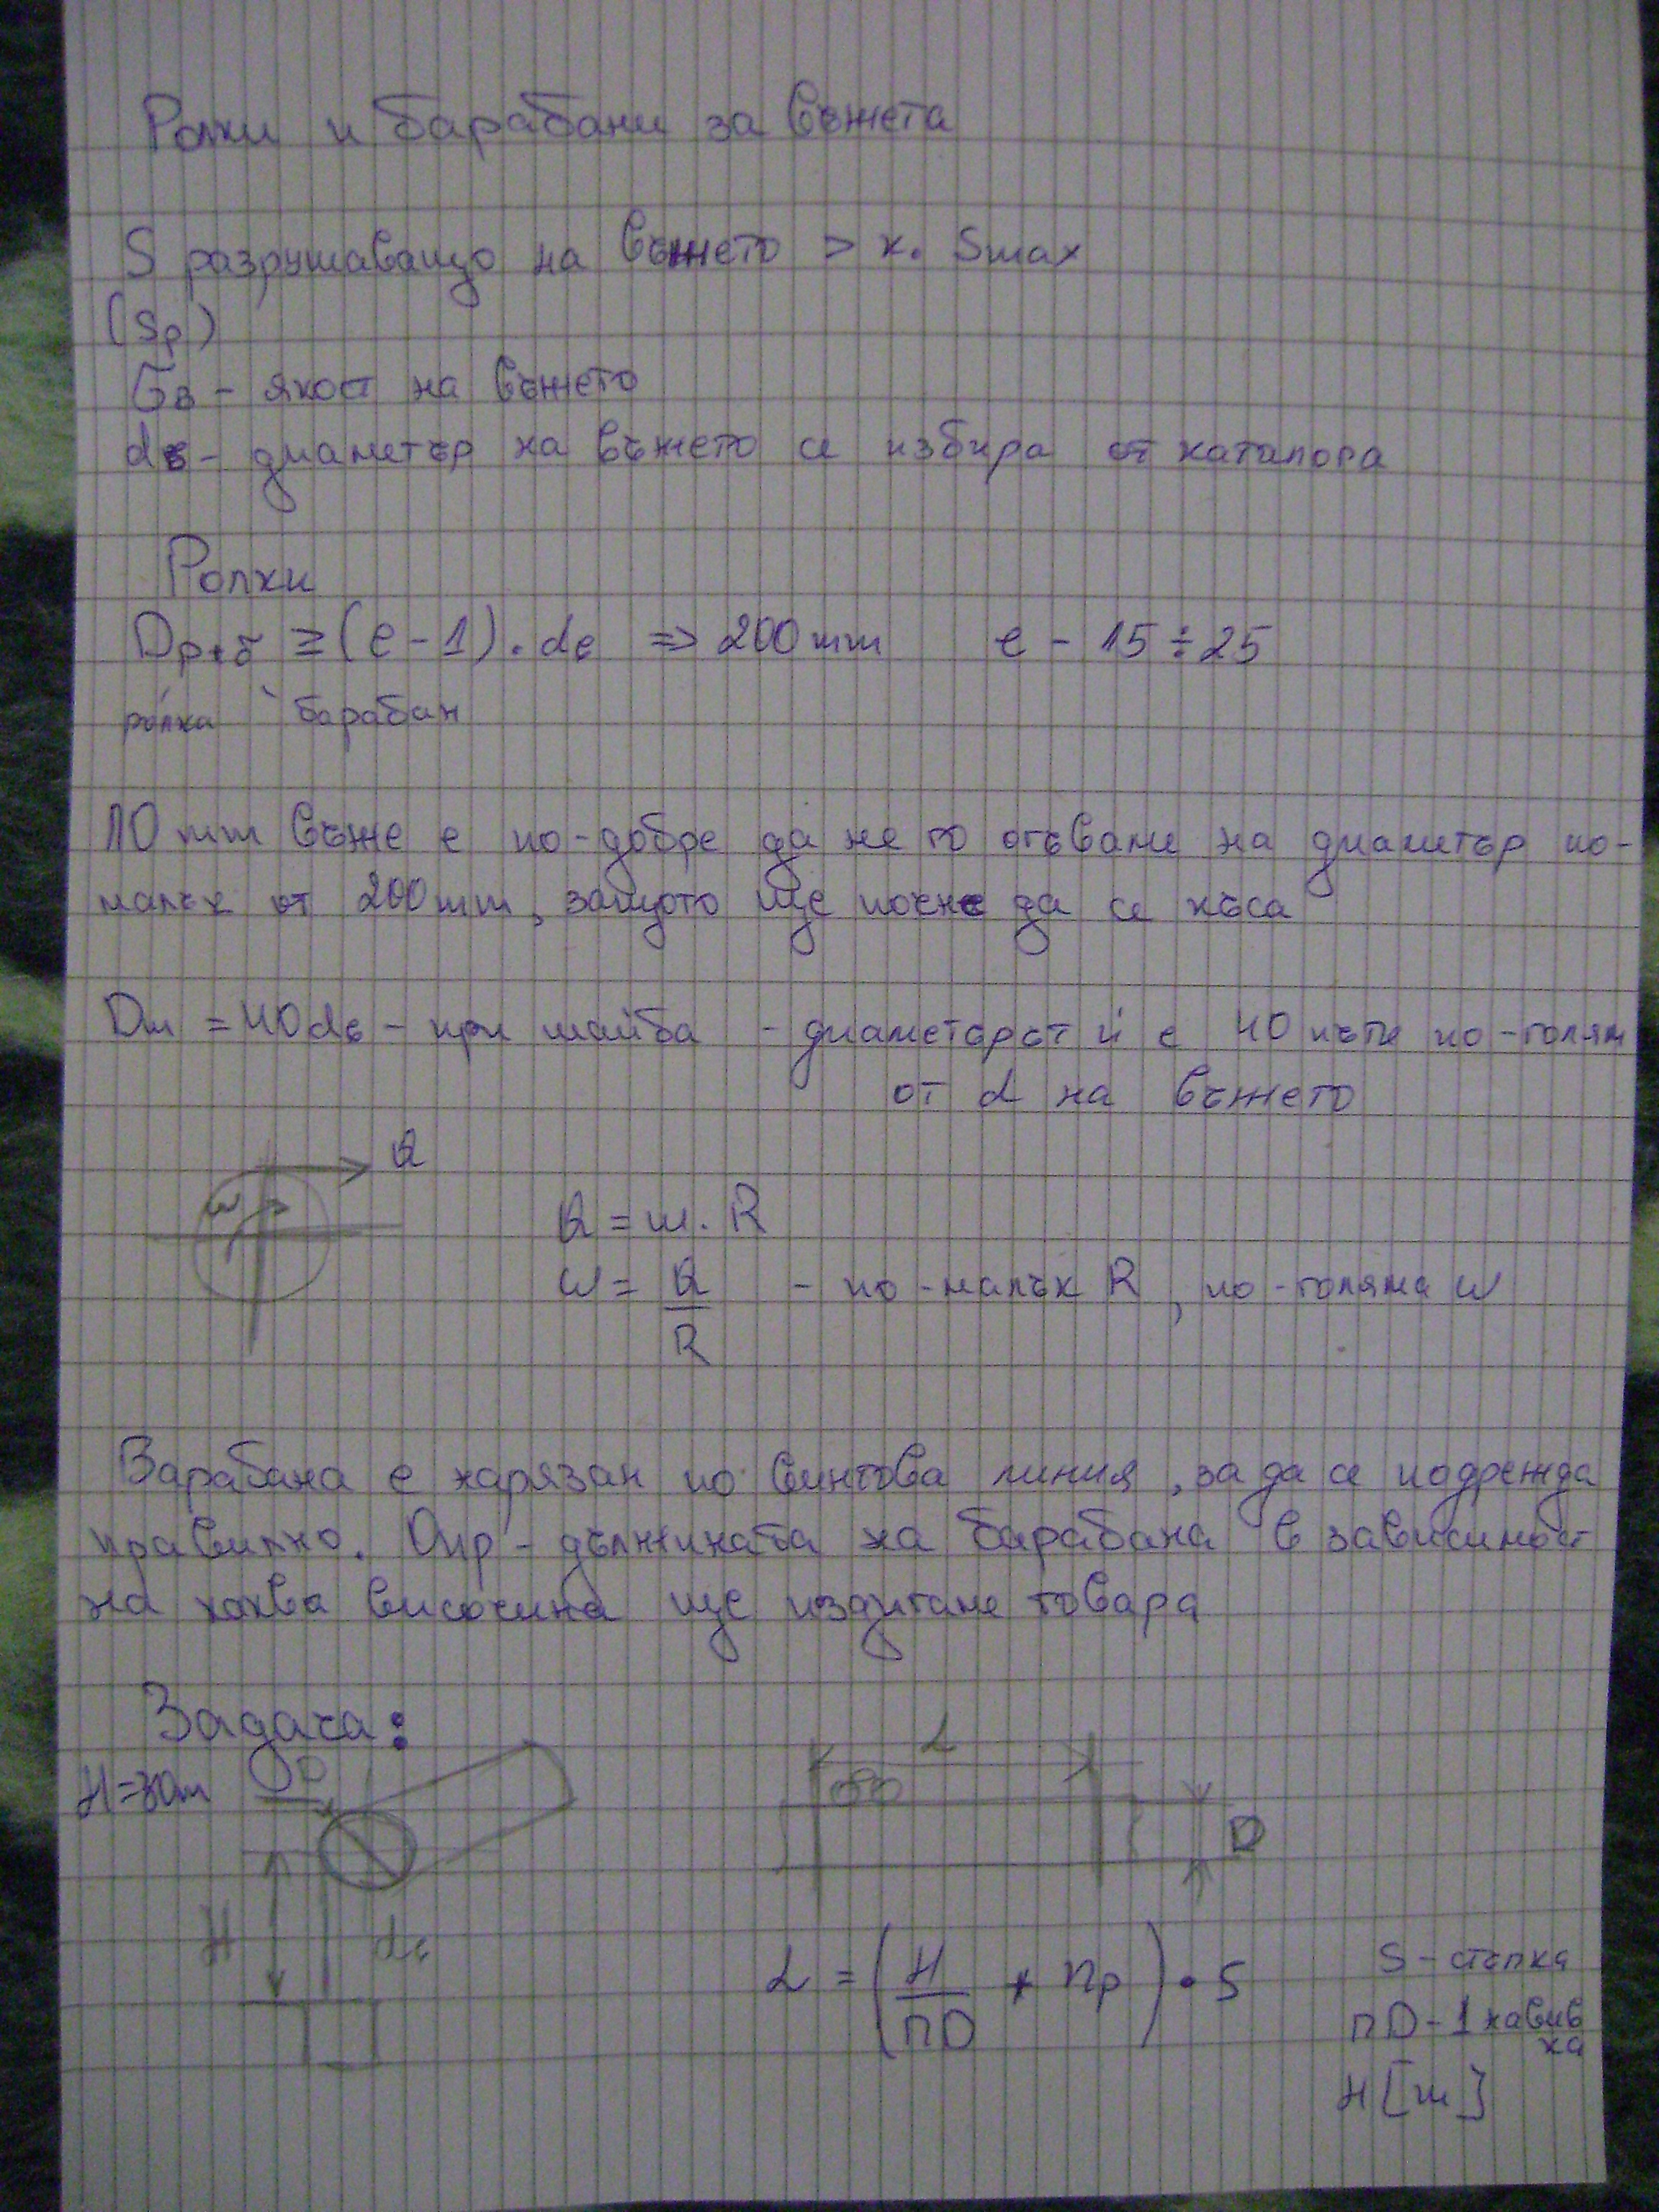 Ролки и барабани за въжета
S разрушаващо на въжето > к. Smax
(Sp)
σв - якост на въжето
dв - диаметър на въжето се избира от каталога
Ролки
Dр+б ≥ (e - 1) . dв => 200 mm e - 15 ÷ 25
ролка барабан
10 mm въже е по-добре да не го огъваме на диаметър по-
малък от 200 mm, защото ще почне да се къса
Dш = 40dв - при шайба - диаметърът ѝ е 40 пъти по-голям
от d на въжето
ω
= ω . R
ω = - по-малък R, по-голяма ω
R
Барабана е нарязан по винтова линия, за да се подрежда
правилно. Опр - дължината на барабана в зависимост
на каква височина ще издигаме товара
Задача:
H=30m D L
D
H dв
L = (H/πD + np) . S
S - стъпка
πD - 1 навив
ка
H [m]